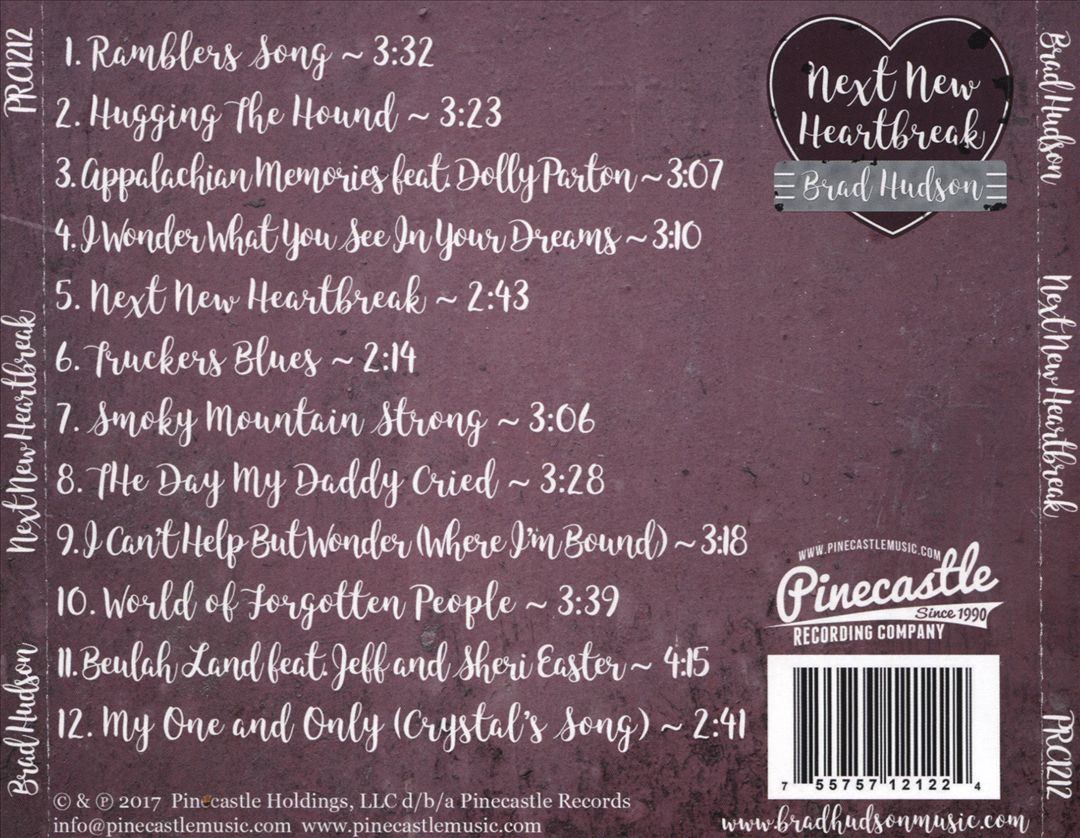 PRC1212
Next New Heartbreak
Brad Hudson
1. Ramblers Song ~ 3:32
2. Hugging The Hound ~ 3:23
3. Appalachian Memories feat. Dolly Parton ~ 3:07
4. I Wonder What You See In Your Dreams ~ 3:10
5. Next New Heartbreak ~ 2:43
6. Truckers Blues ~ 2:14
7. Smoky Mountain Strong ~ 3:06
8. THe Day My Daddy Cried ~ 3:28
9. I Can't Help But Wonder (Where I'm Bound) ~ 3:18
10. World of Forgotten People ~ 3:39
11. Beulah Land feat. Jeff and Sheri Easter ~ 4:15
12. My One and Only (Crystal's Song) ~ 2:41
© & ℗ 2017 Pinecastle Holdings, LLC d/b/a Pinecastle Records
info@pinecastlemusic.com www.pinecastlemusic.com
Next New
Heartbreak
Brad Hudson
WWW.PINECASTLEMUSIC.COM
Pinecastle
Since 1990
RECORDING COMPANY
7 55757 12122 4
www.bradhudsonmusic.com
Brad Hudson
Next New Heartbreak
PRC1212